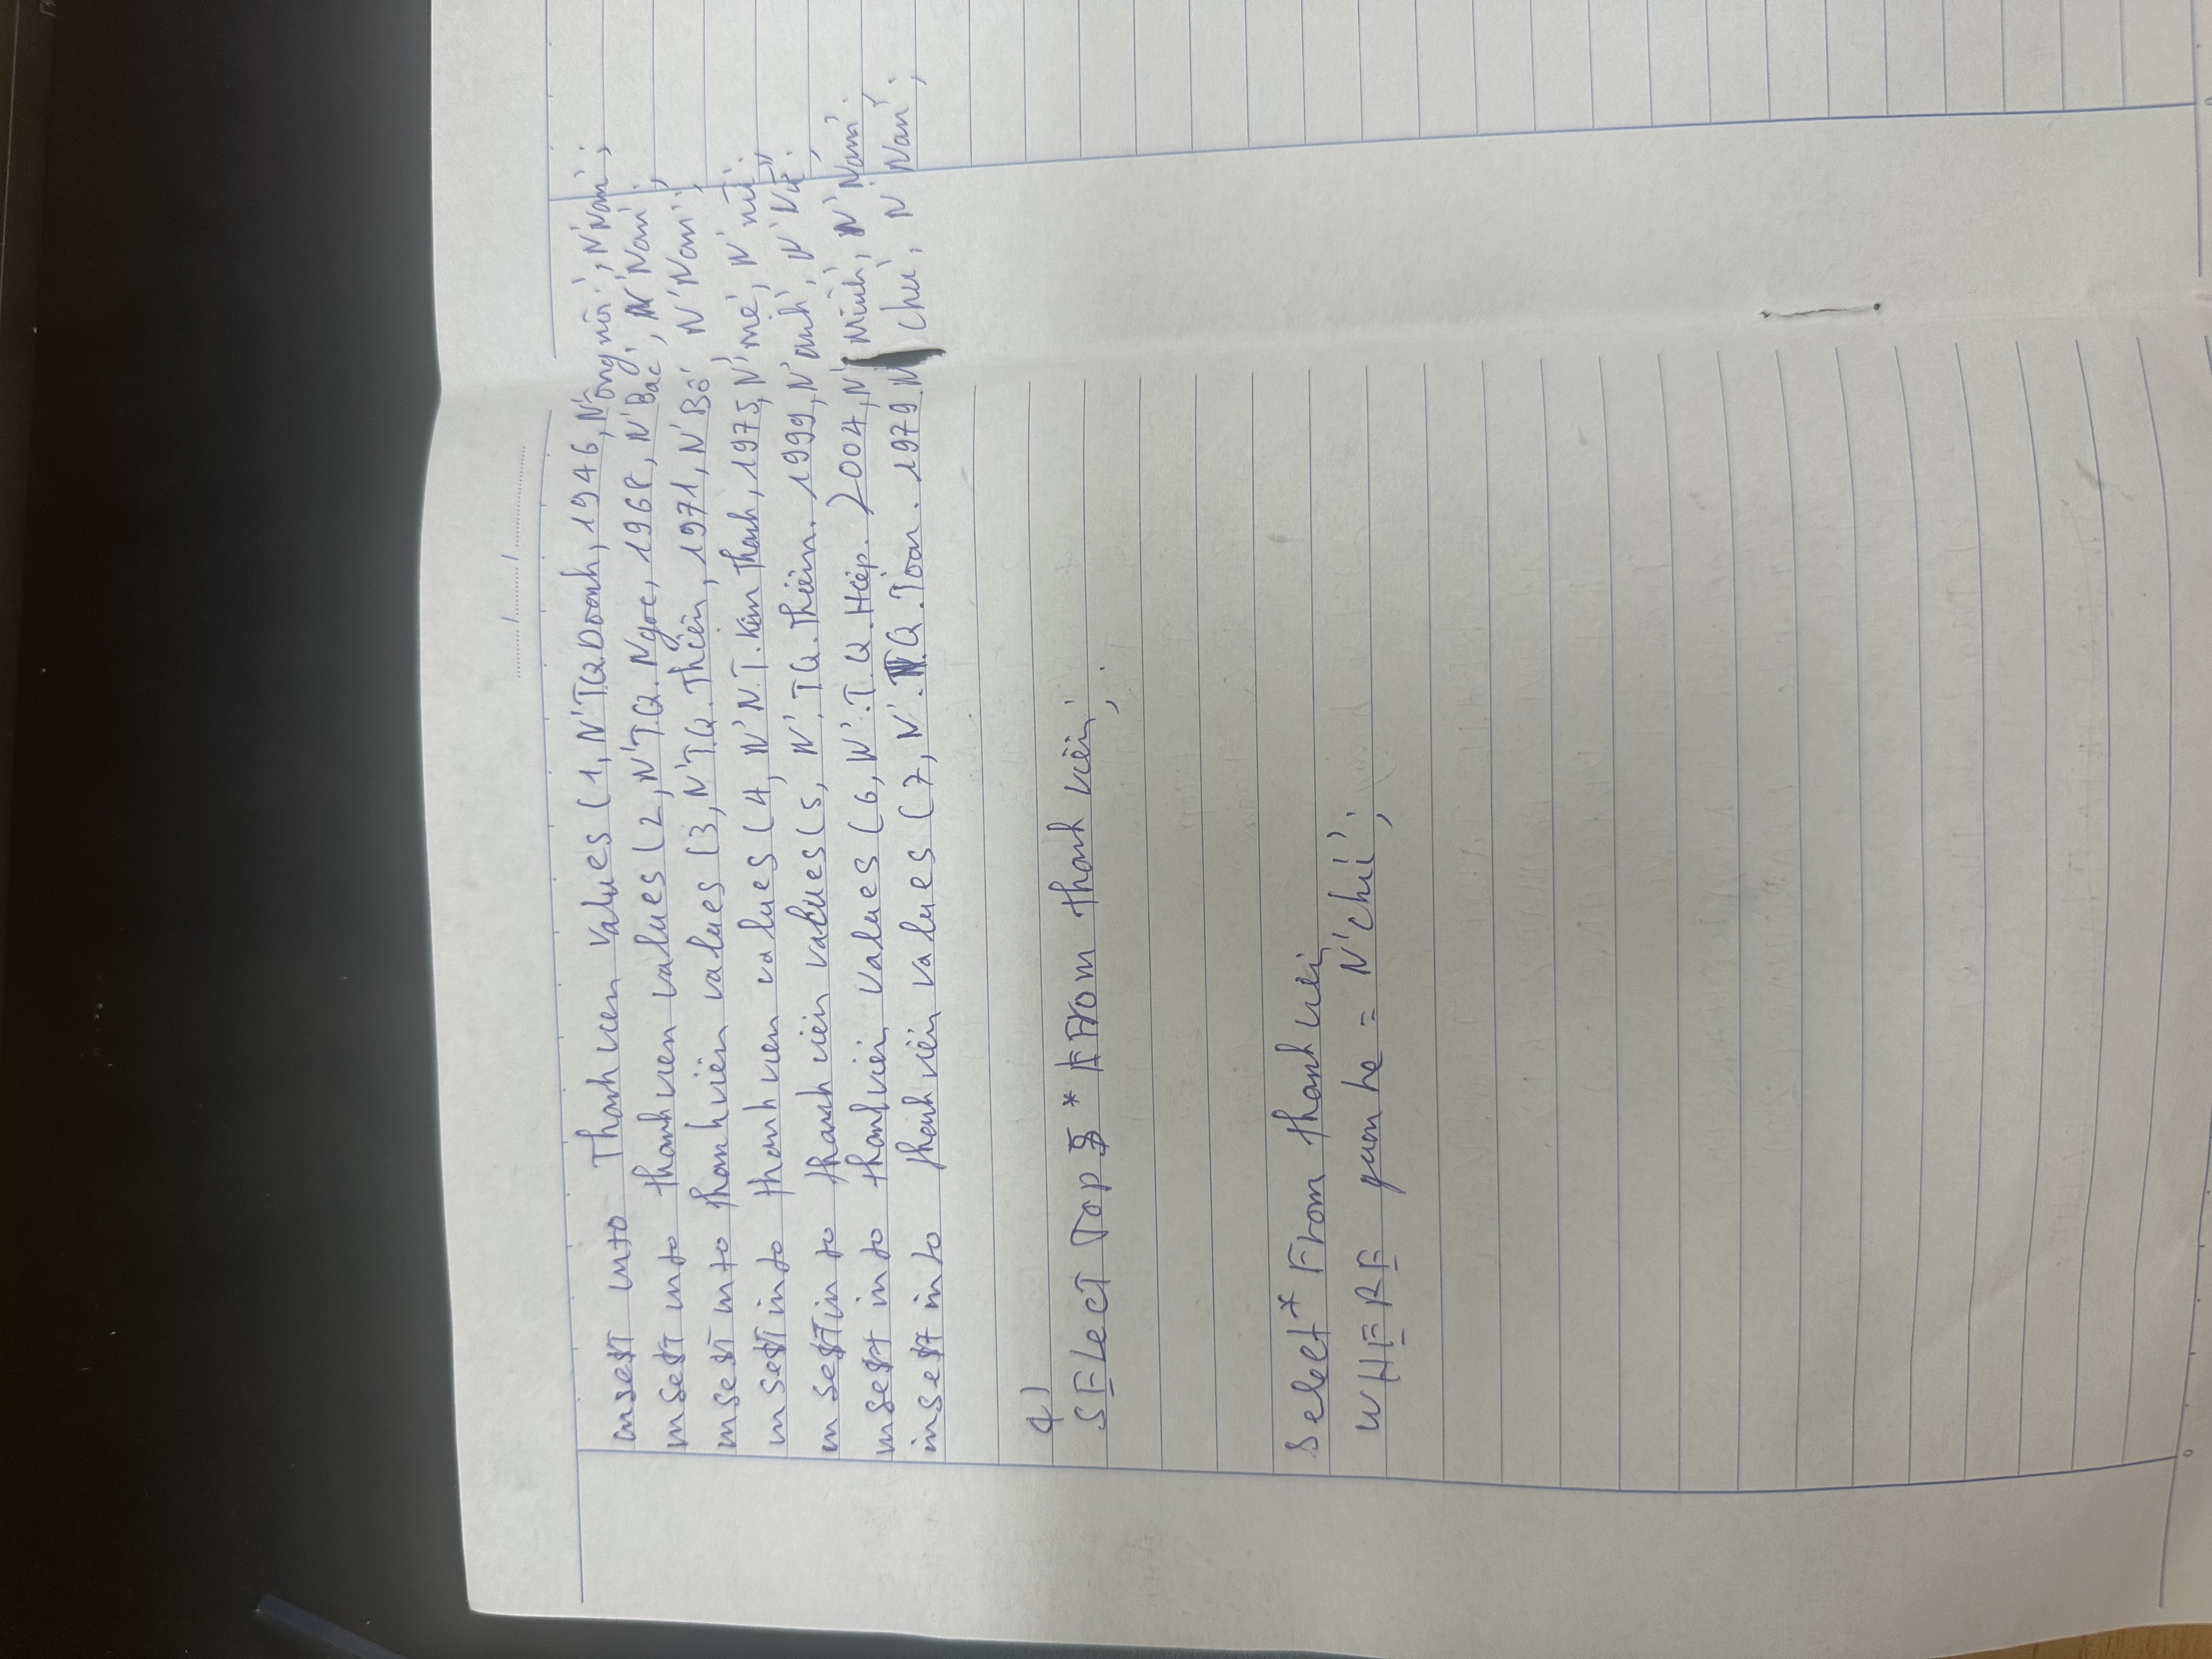 insert into Thanhvien values (1, N'T.Q.Doanh, 1946, N'ông nôi', N'Nam';
insert into thanhvien values (2, N'T.Q. Ngoc, 1968, N'Bac', N'Nam';
insert into thanhviên values (3, N'T.Q. Thiên, 1971, N'Bô' N'Nam';
insert into thanhvien values (4, N'N.T. Kim Thanh, 1975, N'me', N'nữ';
insert into thanhviên values (5, N'. T.Q. Thiên. 1999, N'anh', N'Nữ';
insert into thanhviên values (6, N'. T.Q. Hiêp. 2004, N' Minh', N'Nam';
insert into thanhviên values (7, N'. T.Q. Toan. 1979. N' chú', N'Nam';
4)
SELECT TOP 5 * From thanhviên;
Select * From thanhviên
WHERE quanhe = N'chú';